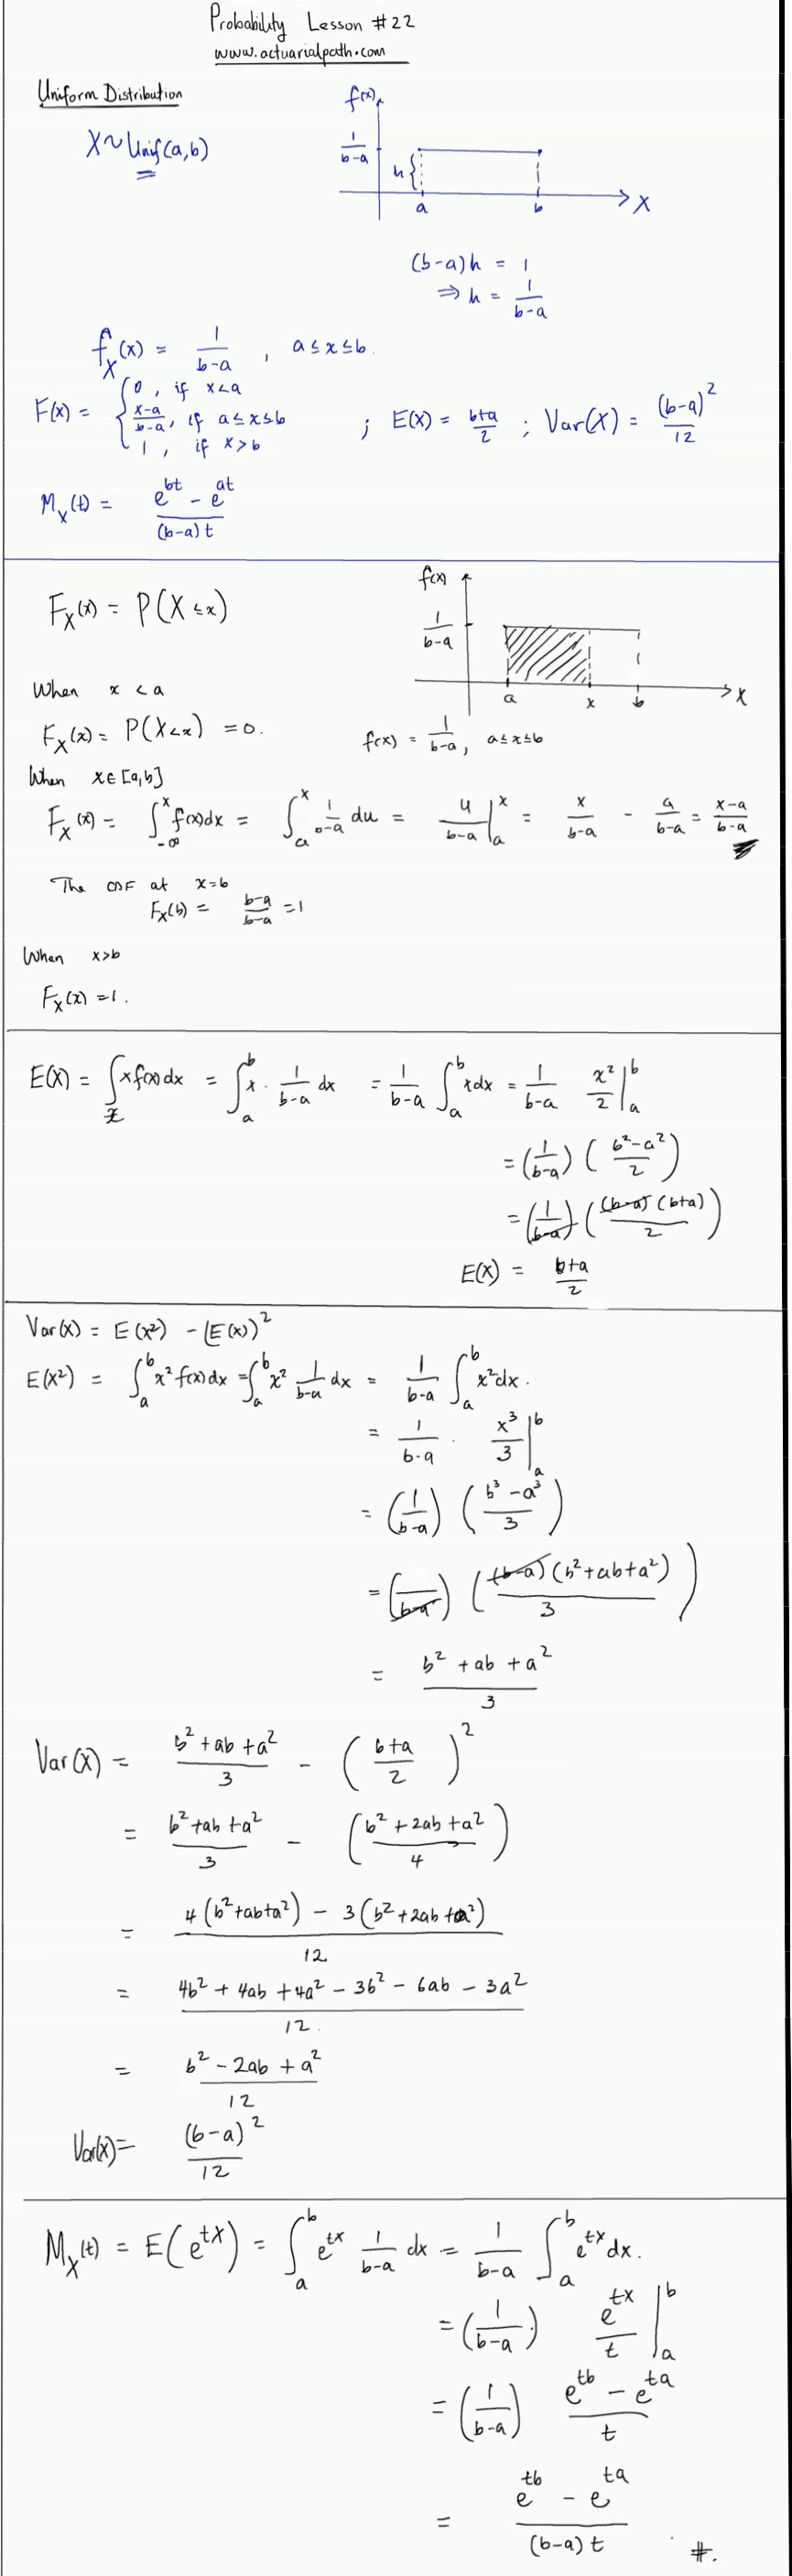 Probability Lesson #22
www.actuarialpath.com
Uniform Distribution
X ~ Unif(a,b)
f(x)
1/(b-a)
h {
a b X
(b-a)h = 1
⇒ h = 1/(b-a)
f_X(x) = 1/(b-a) , a ≤ x ≤ b.
F(x) = { 0, if x<a
(x-a)/(b-a), if a ≤ x ≤ b ; E(X) = (b+a)/2 ; Var(X) = (b-a)²/12
1, if x>b
M_X(t) = (e^{bt} - e^{at})/((b-a)t)
F_X(x) = P(X ≤ x)
f(x)
1/(b-a)
a x b X
f(x) = 1/(b-a), a≤x≤b
When x < a
F_X(x) = P(X<x) = 0.
When x∈[a,b]
F_X(x) = ∫_{-∞}^{x} f(x)dx = ∫_a^x 1/(b-a) du = u/(b-a) |_a^x = x/(b-a) - a/(b-a) = (x-a)/(b-a)
The CDF at x=b
F_X(b) = (b-a)/(b-a) = 1
When x>b
F_X(x) = 1.
E(X) = ∫_x x f(x) dx = ∫_a^b x · 1/(b-a) dx = 1/(b-a) ∫_a^b x dx = 1/(b-a) x²/2 |_a^b
= (1/(b-a)) ((b²-a²)/2)
= (1/(b-a)) ((b-a)(b+a)/2)
E(X) = (b+a)/2
Var(X) = E(X²) - (E(X))²
E(X²) = ∫_a^b x² f(x) dx = ∫_a^b x² 1/(b-a) dx = 1/(b-a) ∫_a^b x² dx.
= 1/(b-a) · x³/3 |_a^b
= (1/(b-a)) ((b³-a³)/3)
= ( /(b-a)) ((b-a)(b²+ab+a²)/3)
= (b² + ab + a²)/3
Var(X) = (b²+ab+a²)/3 - ((b+a)/2)²
= (b²+ab+a²)/3 - ((b²+2ab+a²)/4)
= (4(b²+ab+a²) - 3(b²+2ab+a²))/12
= (4b² + 4ab + 4a² - 3b² - 6ab - 3a²)/12.
= (b² - 2ab + a²)/12
Var(x) = (b-a)²/12
M_X(t) = E(e^{tX}) = ∫_a^b e^{tx} 1/(b-a) dx = 1/(b-a) ∫_a^b e^{tx} dx.
= (1/(b-a)) e^{tx}/t |_a^b
= (1/(b-a)) (e^{tb} - e^{ta})/t
= (e^{tb} - e^{ta})/((b-a)t) #.